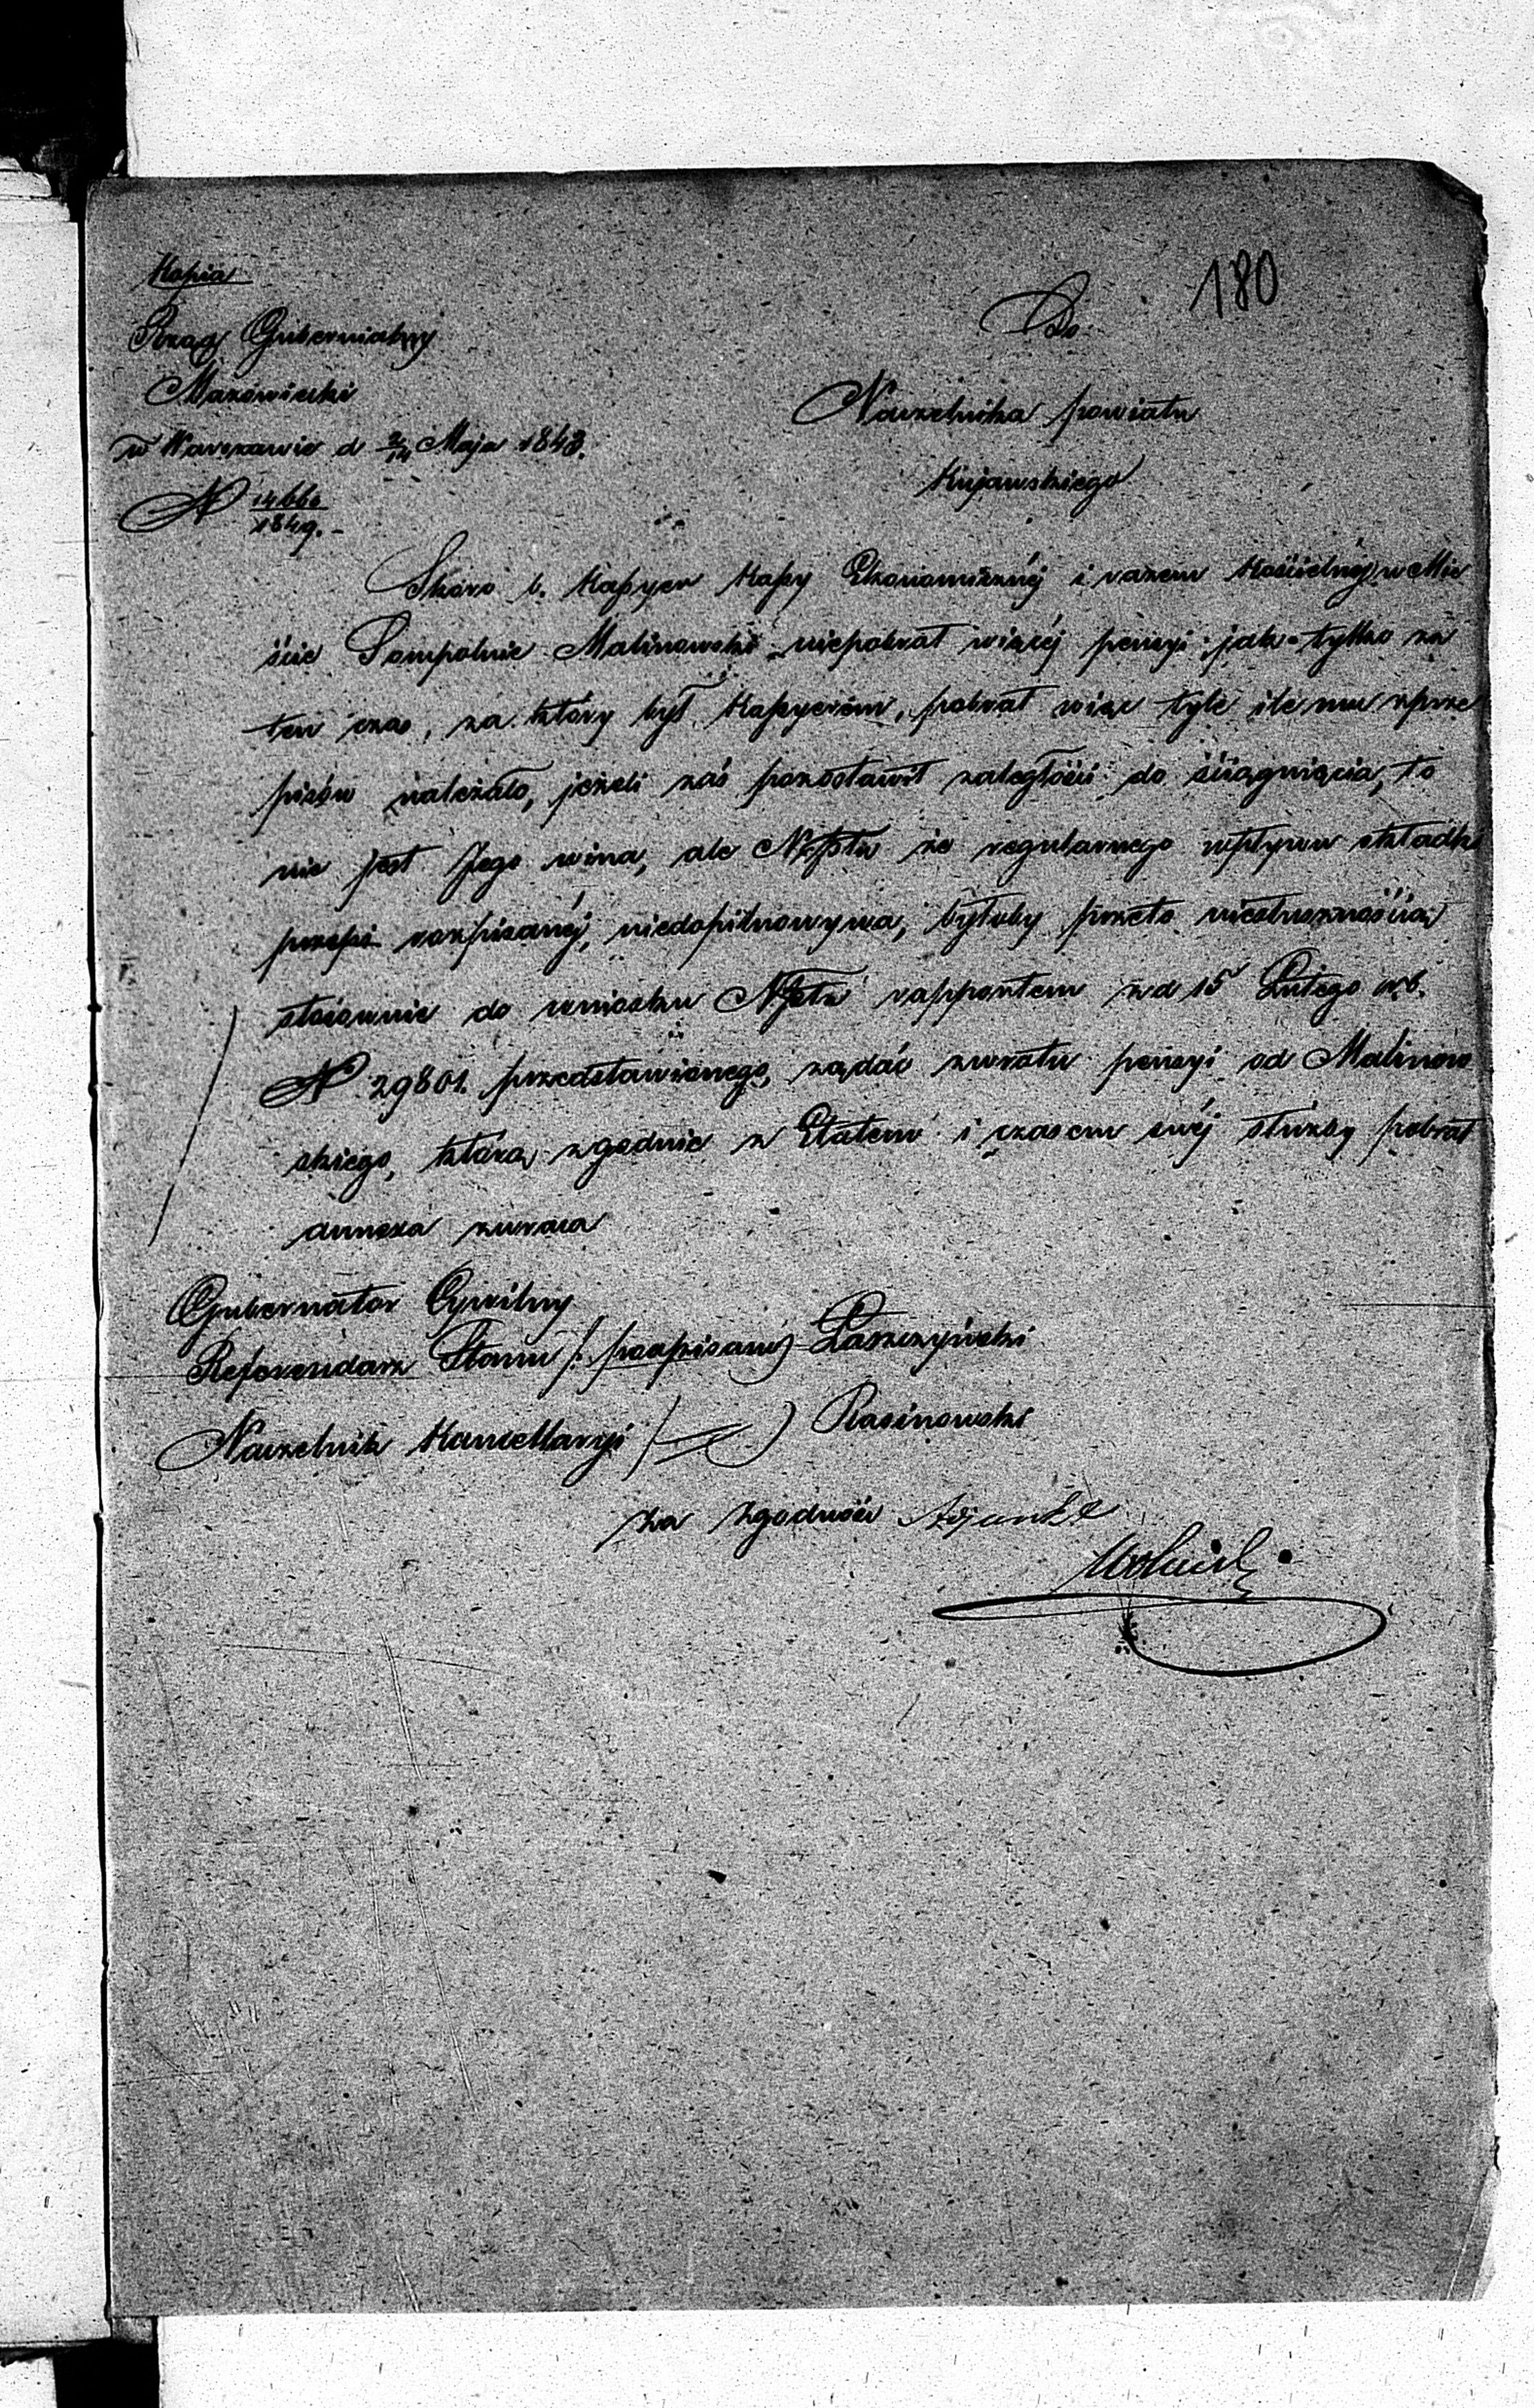 180
Kopia
Rząd Gubernialny
Mazowiecki
w Warszawie d 2/14 Maja 1843.
N 14660/1849.-
Do
Naczelnika powiatu
Kujawskiego
Skoro b. Kassyer Kassy Ekonomicznéj i razem Kościelnéj w Mie
ście Sompolnie Malinowski niepobrał więcéj pensyi jak tylko za
ten czas, za który był Kassyerem, pobrał więc tyle ile mu z prze
pisów należało, jeżeli zaś pozostawił zaległości do ściągnięcia, to
nie jest Jego wina, ale że regularnego wpływu składki
przepi rozpisanéj, niedopilnowywa, byłoby przeto niesłusznością
stosownie do wniosku rapportem z d 15 Lutego r.b.
N 29801. przedstawionego, żądać zwrotu pensyi od Malinow
skiego, którą zgodnie z Etatem i czasem swéj służby pobrał
annexa zwraca
Gubernator Cywilny
Referendarz Stanu /podpisany/ Łaszczyński
Naczelnik Kancellaryi Rasinowski
Za Zgodność Adjunkt